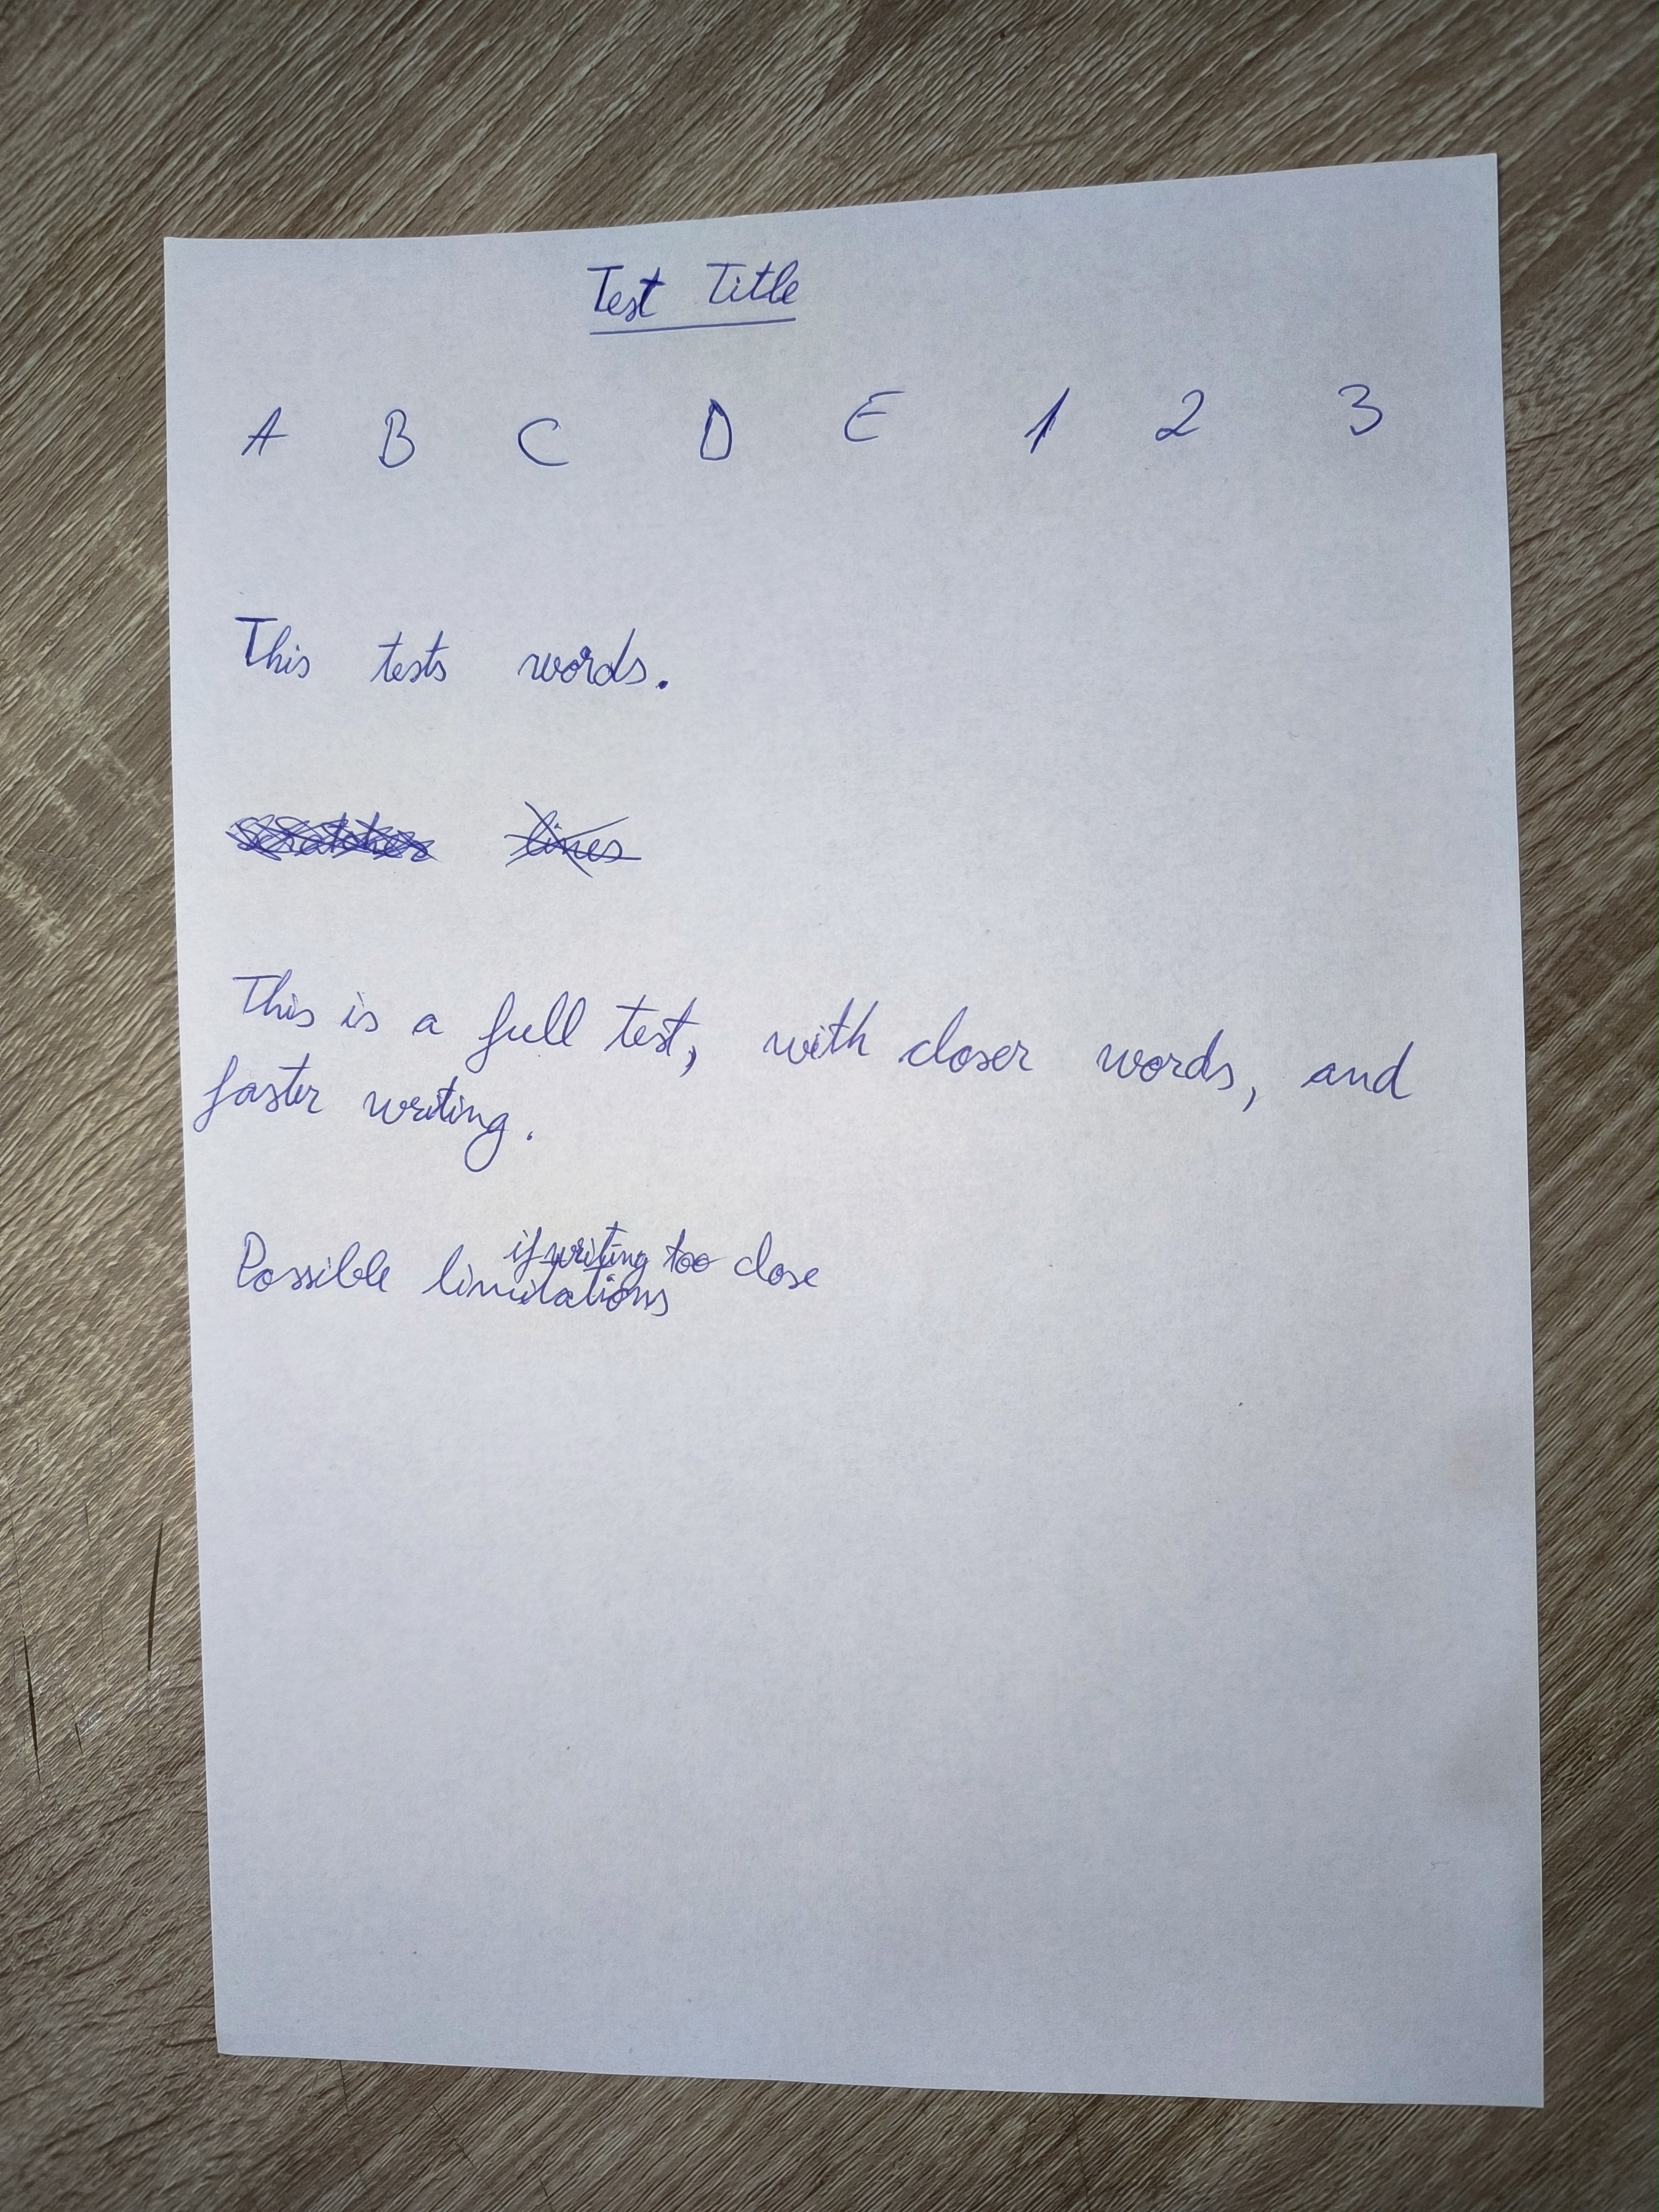 Test Title
A B C D E 1 2 3
This tests words.
scratches lines
This is a full test, with closer words, and
faster writing.
Possible limitations if writing too close